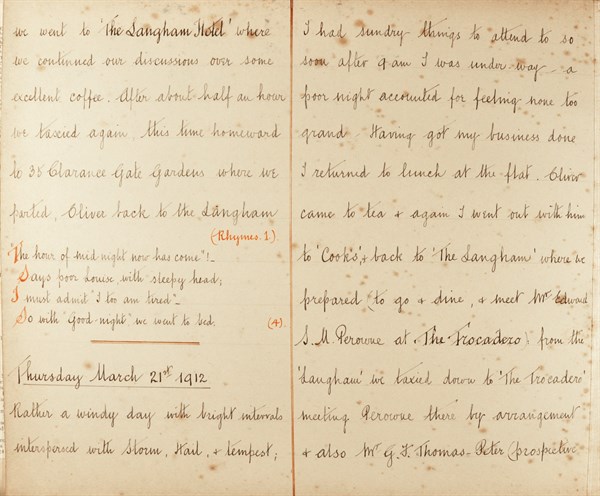 we went to 'The Langham Hotel' where
we continued our discussions over some
excellent coffee. After about half an hour
we taxied again, this time homeward
to 35 Clarance Gate Gardens where we
parted, Oliver back to the Langham
(Rhymes. 1.)
"The hour of mid-night now has come"!–
Says poor Louise with sleepy head;
I must admit "I too am tired"–
So with "Good-night" we went to bed.
(4).
Thursday March 21st 1912
Rather a windy day with bright intervals
interspersed with Storm, Hail, & tempest;
I had sundry things to attend to so
soon after 9 am I was under-way – a
poor night accounted for feeling none too
grand. Having got my business done
I returned to lunch at the flat. Oliver
came to tea & again I went out with him
to 'Cooks', & back to 'The Langham' where we
prepared (to go & dine, & meet Mr Edward
S. M. Perowne at 'The Trocadero', from the
'Langham' we taxied down to 'The Trocadero'
meeting Perowne there by arrangement
& also Mr G. F. Thomas-Peter (prospective